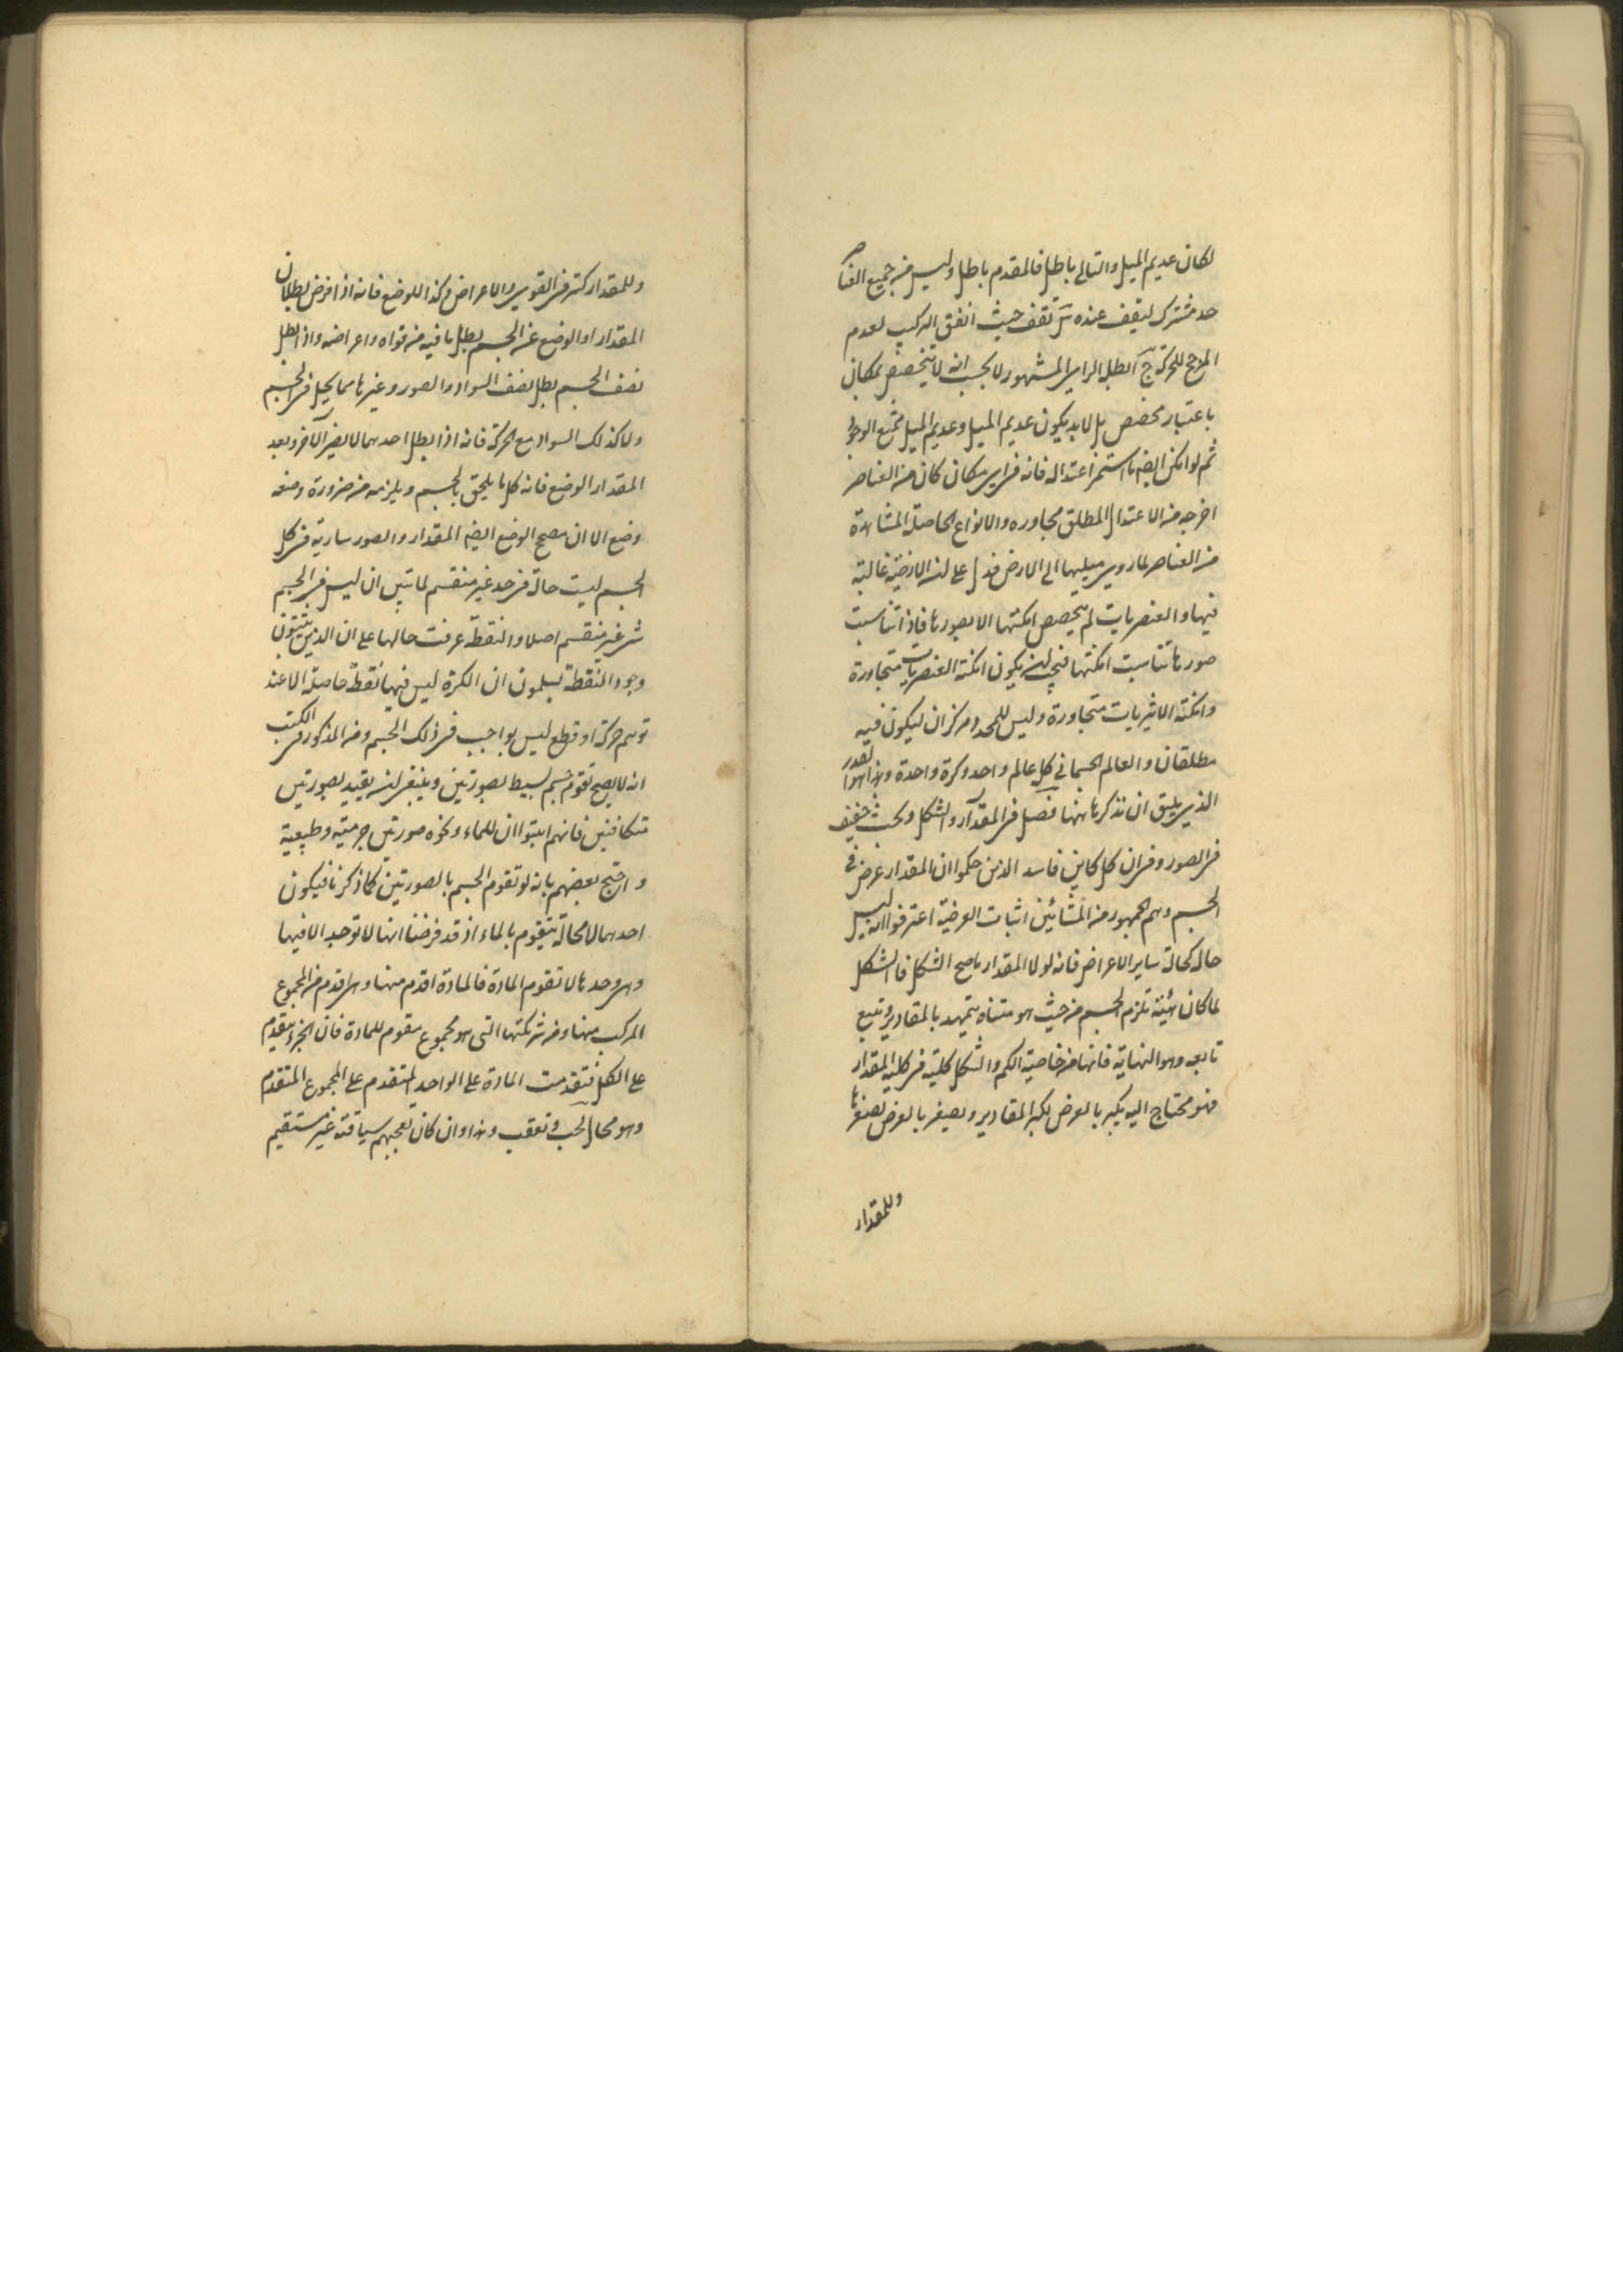 لكان عديم الميل والتالى باطل فالمقدم باطل وليس فى جميع العناصر
حد مشترك ليقف عنده بل تقف حيث اتفق التركيب لعدم
المرجح للحركة ج ابطل الراى المشهور لا يجب انه لا يتخصص بمكان
باعتبار مخصص بل لابد يكون عديم الميل وعديم الميل ممتنع الوجود
ثم لو امكن ايضا ما استمر اعتداله فانه فى اى مكان كان من العناصر
اخرجه من الاعتدال المطلق مجاوره والانواع الحاصلة المشاهدة
من العناصر لما روى ميلها الى الارض فدل على ان الارضية غالبة
فيها والعنصريات لم يخصص امكنتها الا بصورها فاذا تناسبت
صورها تناسبت امكنتها فيجب ان يكون امكنة العنصريات متجاورة
وامكنة الاثيريات متجاورة وليس للمحدد مركزان ليكون فيه
مطلقان والعالم الجسمانى كل عالم واحد وكرة واحدة وهذا هو القدر
الذى يليق ان نذكرها هنا فصل فى المقدار والشكل وبحث خفيف
فى الصور وفى ان كل كاين فاسد الذين حكموا ان المقدار عرض فى
الجسم وهم الجمهور من المشائين اثبات العرضية اعترفوا انه ليس
حاله كحالة ساير الاعراض فانه لولا المقدار ما صح الشكل فالشكل
لما كان هيئة تلزم الجسم من حيث هو متناه يتمهد بالمقادير وتتبع
تابعه وهو النهاية فانها من خاصية الكم والشكل كلية فى كلية المقدار
فهو محتاج اليه يكبر بالعرض بكبر المقادير ويصغر بالعرض لصغرها
وللمقدار
وللمقدار كثر فى القوى والاعراض وكذا للوضع فانه اذا فرض بطلان
المقدار او الوضع عن الجسم بطل ما فيه من قواه واعراضه واذا بطل
نصف الجسم بطل نصف السواد والصور وغيرها مما يحل فى الجسم
ولا كذلك السواد مع الحركة فانه اذا بطل احدهما لا يضر الآخر وبعد
المقدار الوضع فانه كل ما يلحق بالجسم ويلزمه من ضرورة وضعه
وضع الا ان مصحح الوضع ايضا المقدار والصور سارية فى كل
الجسم ليست حالة فى حد غير منقسم لما تبين ان ليس فى الجسم
شى غير منقسم اصلا والنقطة عرفت حالها على ان الذين يثبتون
وجود النقطة يسلمون ان الكرة ليس فيها نقطة حاصلة الا عند
توهم حركة او قطع ليس بواجب فى ذلك الجسم ومن المذكور فى الكتب
انه لا يصح تقوم جسم بسيط بصورتين وينبغى ان يقيد بصورتين
متكافئين فانهم اثبتوا ان للماء ونحوه صورتين جرمية وطبيعية
واحتج بعضهم بانه لو تقوم الجسم بالصورتين كما ذكرنا فيكون
احدهما لا محالة يتقوم بالماء اذ قد فرضنا انها لا توجد الا فيها
وهى وحدها لا تقوم المادة فالمادة اقدم منها وهى اقدم من المجموع
المركب منها ومن شركتها التى هو مجموع مقوم للمادة فان الجزء يتقدم
على الكل فتقدمت المادة على الواحد المتقدم على المجموع المتقدم
وهو محال بحث وتعقب وهذا وان كان تعجبهم سياقته غير مستقيم